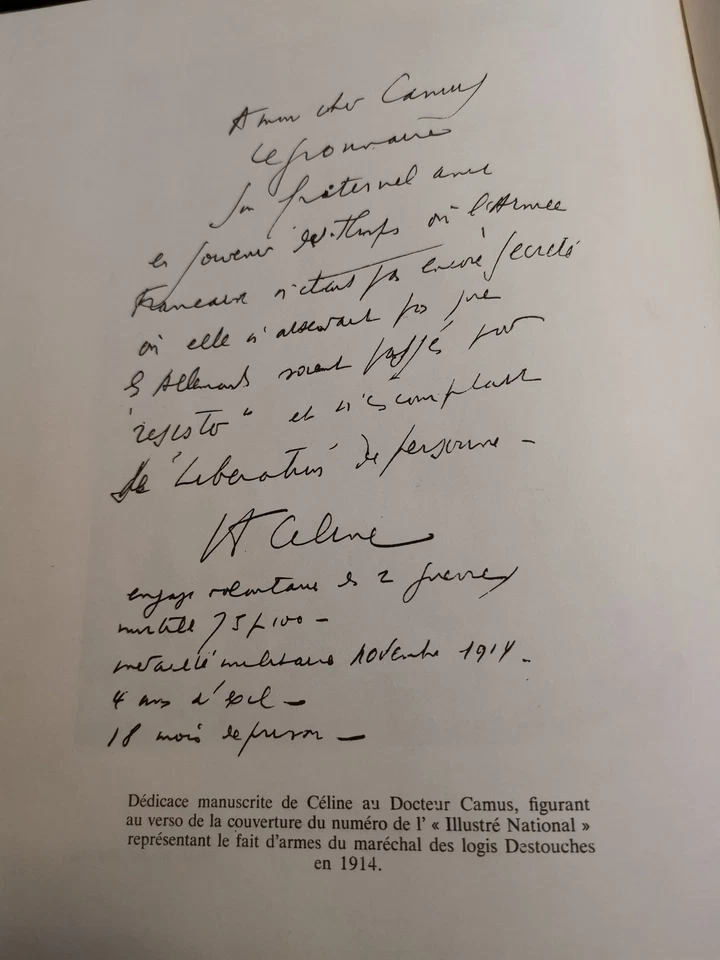 A mon cher Camus
légionnaire
Son fraternel ami
en souvenir des temps où l'Armée
Française n'était pas encore secrète
où elle n'attendait pas que
les Allemands soient passés pour
"résister" et n'
"Libération" de personne -
LF Celine
engagé volontaire les 2 guerres
mutilé 75 p 100 -
médaillé militaire Novembre 1914 -
4 ans d'exil -
18 mois de prison -
Dédicace manuscrite de Céline au Docteur Camus, figurant
au verso de la couverture du numéro de l' « Illustré National »
représentant le fait d'armes du maréchal des logis Destouches
en 1914.